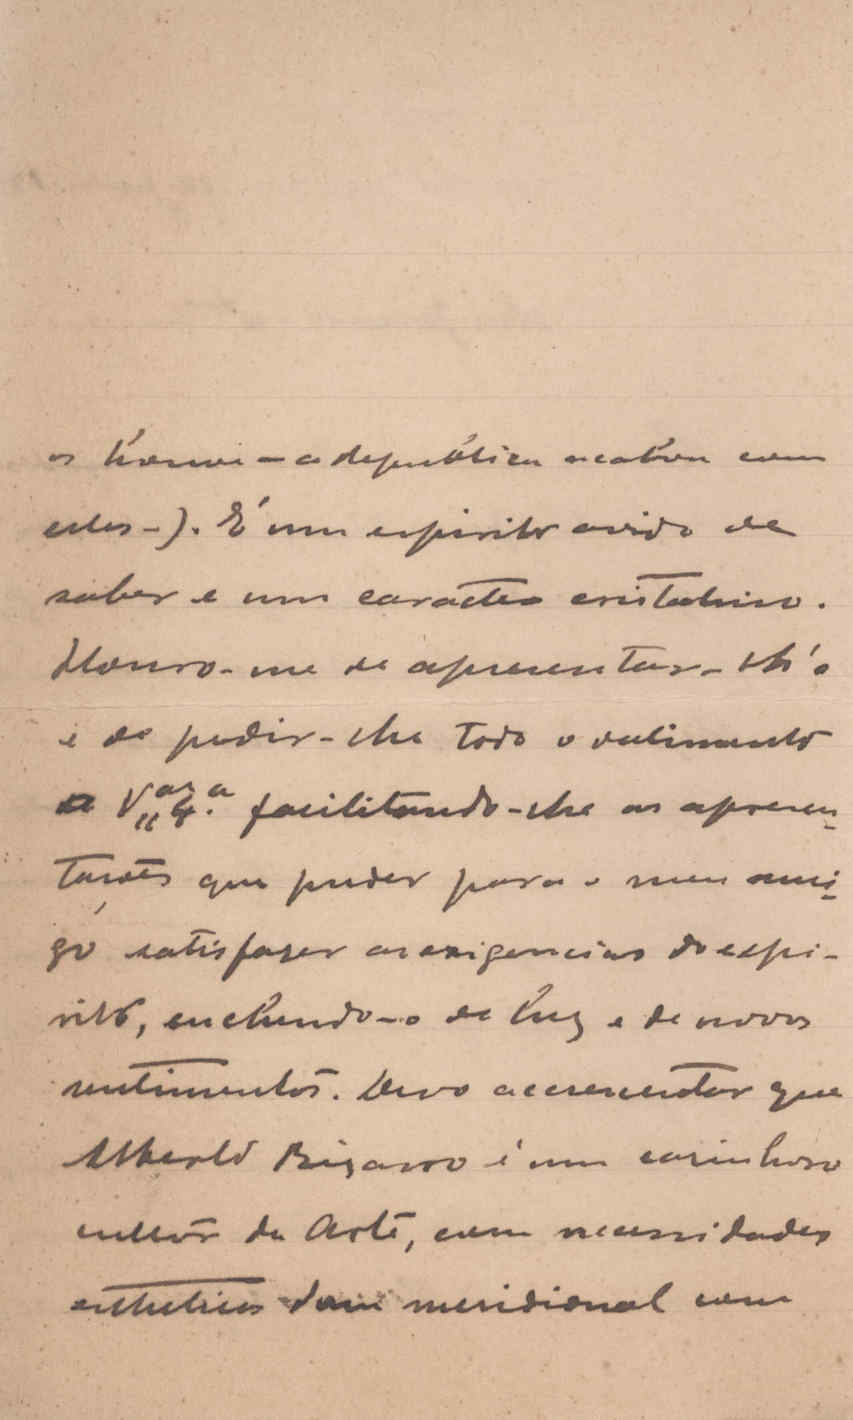 os houve - a républica acabou com
elles -). É um espirito avido de
saber e um caracter cristalino.
Honro-me de apresentar-lh'o
e de pedir-lhe todo o valimento
a V. facilitando-lhe as apresen-
tações que puder para o meu ami-
go satisfazer as exigencias do espi-
rito, enchendo-o de luz e de novos
sentimentos. Devo accrescentar que
Alberto Bizarro é um carinhoso
cultor da Arte, com necessidades
estheticas d'um meridional com